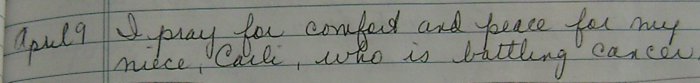 April 9 I pray for comfort and peace for my
niece, Carli, who is battling cancer